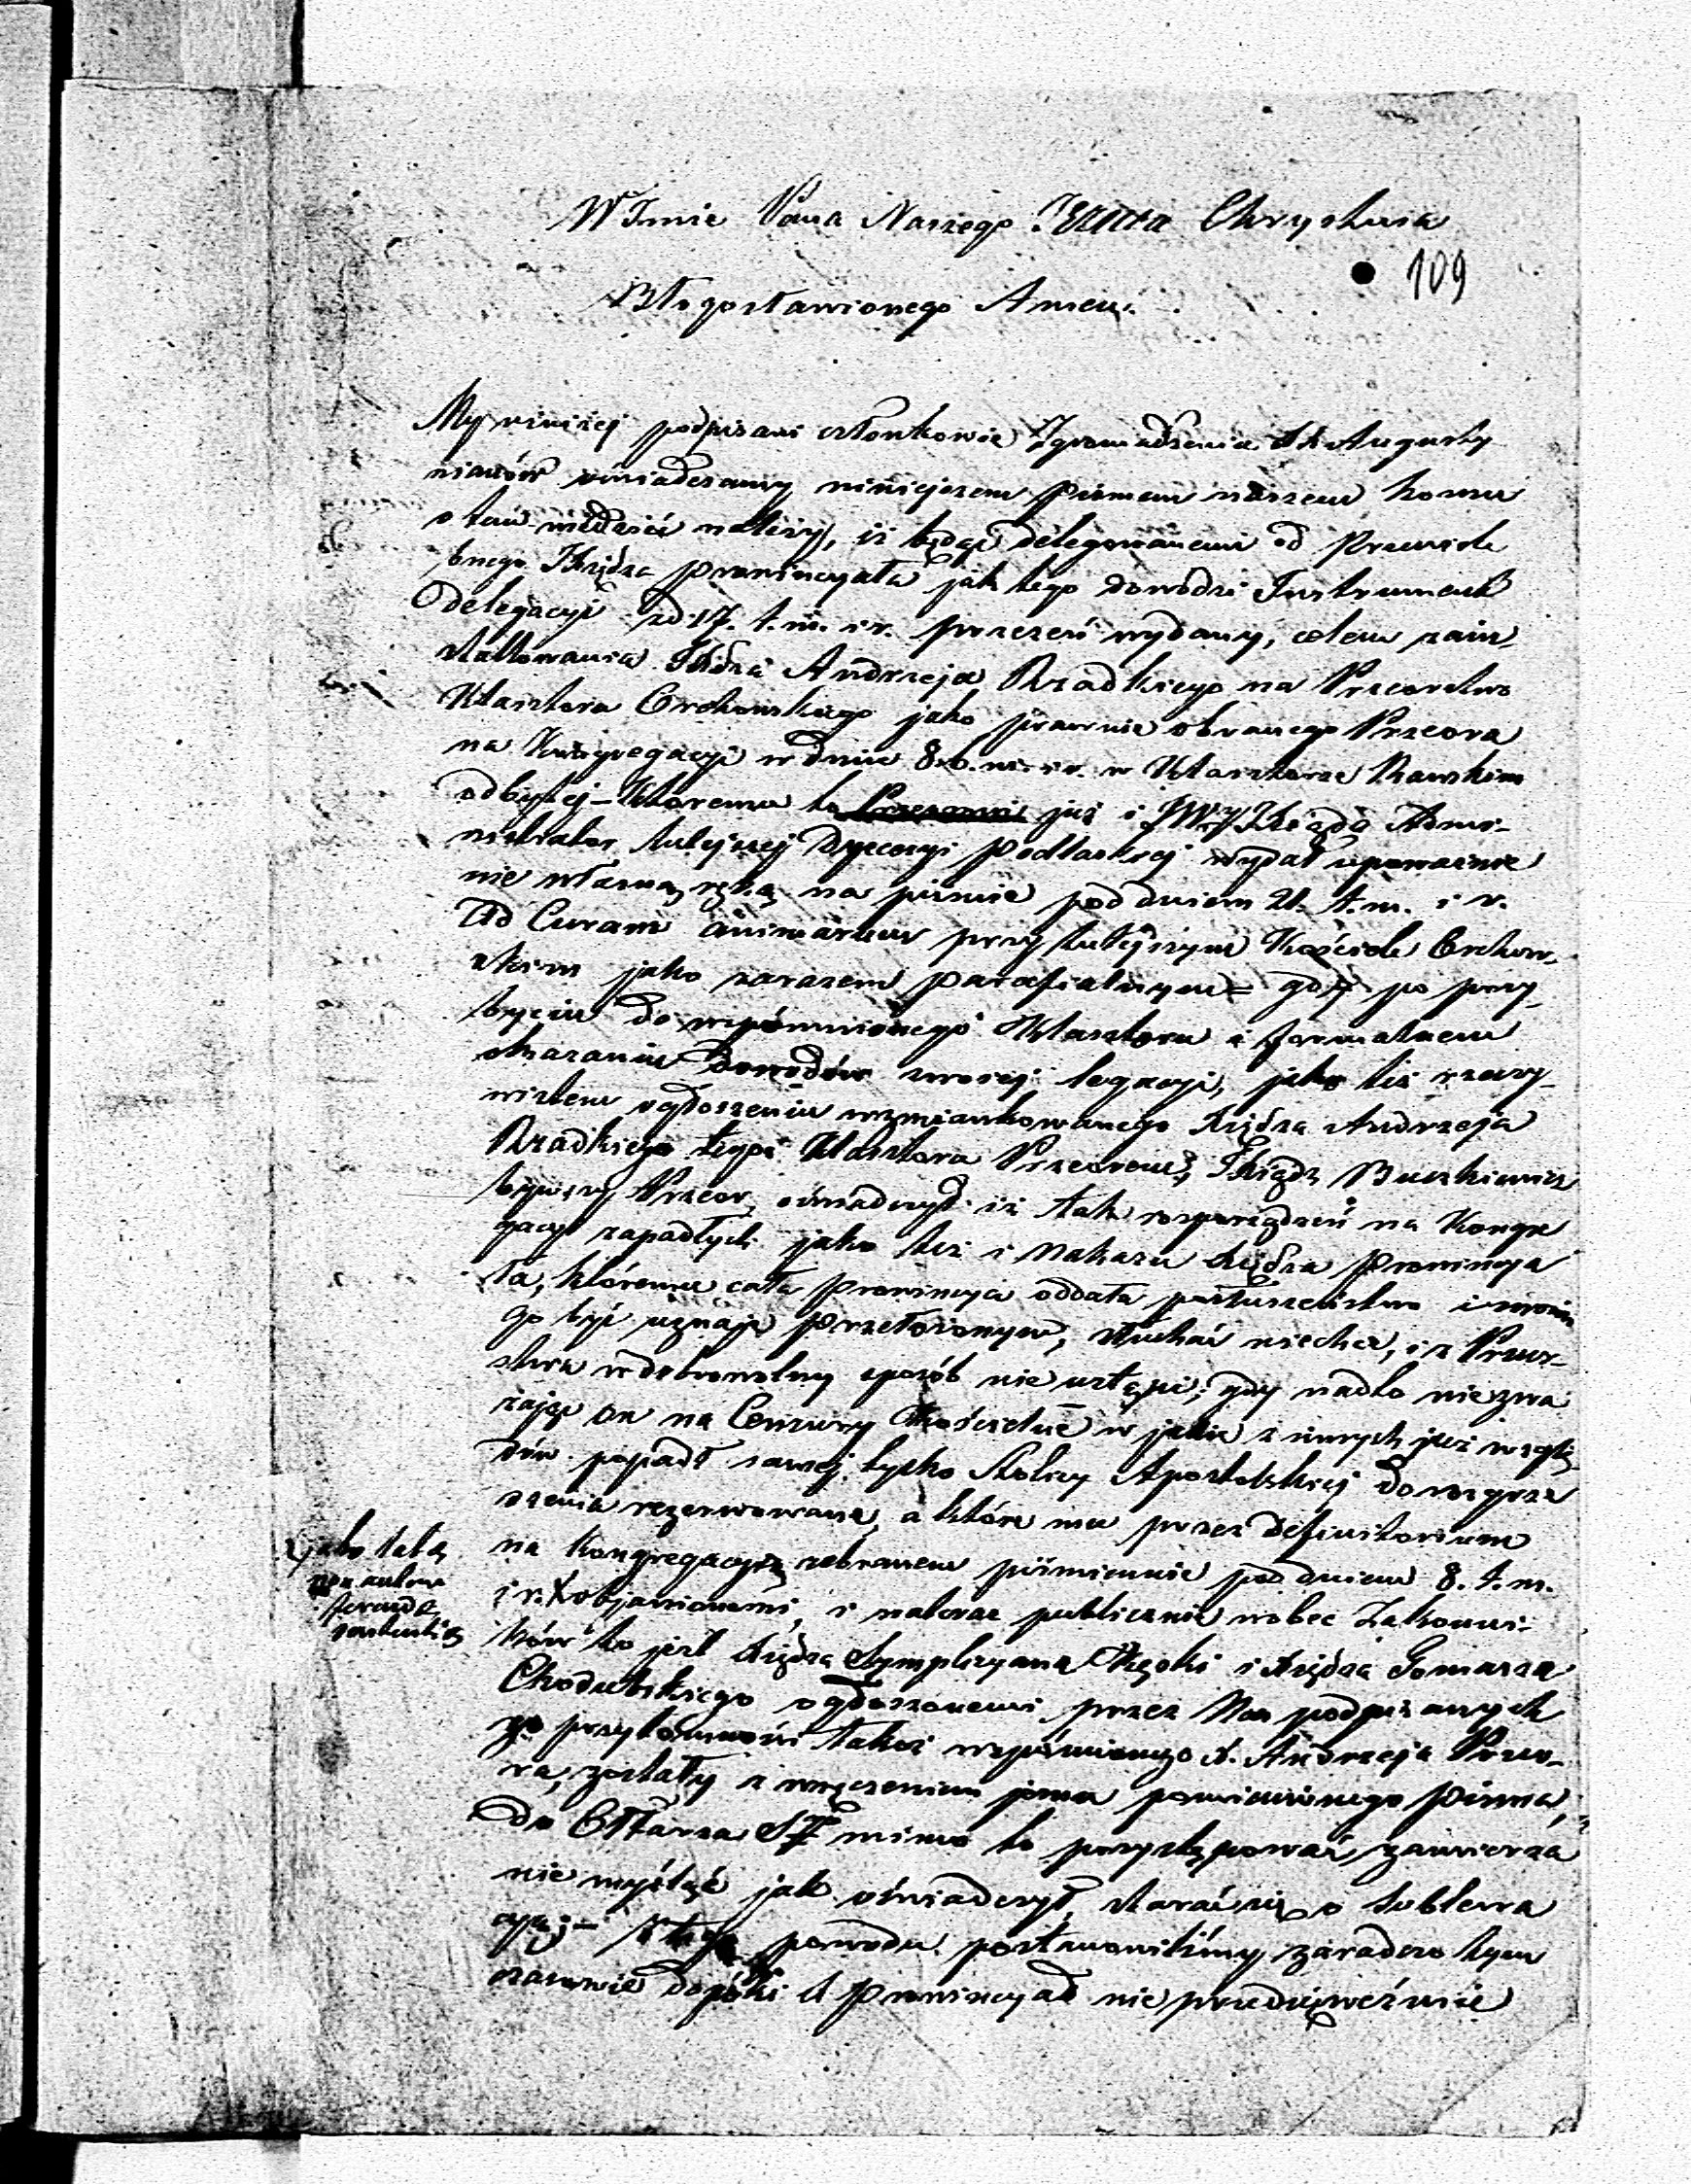 W Imie Pana Naszego Jezusa Chrystusa
109
Błogosławionego Amen.
My niniżej podpisani członkowie Zgromadzenia Augusty
nianów oświadczamy niniejszem pismem naszem komu
o tem wiedzieć należy, iż będąc delegowanemi od Przewiele
bnego Xiędza prowincyała jak tego dowodzi Instrument
delegacyi zd 17. t. m. i r. przezeń wydany, celem zain-
stallowania Xiędza Andrzeja Rzadkiego na Przeorstwo
Klasztora Orchowskiego jako prawnie obranego Przeora
na Kongregacyi w dniu 8. b. m. i r. w Klasztorze Rawskim
odbytej – Któremu to już i JWy Xiądz Admi-
nistrator tutejszej Dyecezyi podlaskiej wydał upoważnie
nie własną ręką na piśmie pod dniem 21. t. m. i r.
Ad Curam animarum przy tutejszym Kościele Orchow-
skim jako zarazem parafialnym – gdy po przy-
byciu do wspomnionego Klasztoru i formalnem
okazaniu Dowodów swojej legacyi, jako też rzeczy-
wistem ogłoszeniu wzmiankowanego Xiędza Andrzeja
Rzadkiego tegoż Klasztora Przeorem, Xiądz Buszkiewicz
bywszy Przeor oświadczył iż tak rozporządzeń na Kongre
gacyi zapadłych jako też i nakazu Xiędza prowincya
ła, któremu cała prowincya oddała posłuszeństwo i swoim
go być uznaje przełożonym, słuchać niechce, i z Przeor-
stwa w dobrowolny sposób nie ustąpi; gdy nadto niezwa
żając on na Cenzury Kościelne w jakie z innych już wzglę
dów popadł samej tylko Stolicy Apostolskiej do rozgrze
szenia rezerwowane, a które mu przez definitorium
na kongregacyi zebranem piśmiennie pod dniem 8. t. m.
i r. X objawionemi, i nateraz publicznie wobec Zakonni-
ków to jest Xiędza Symplicyana i Xiędza Tomasza
Chodubskiego ogłoszonemi przez Nas podpisanych
przytomności także wspomnionego X. Andrzeja Przeo-
ra, zostały z wręczeniem jemu pomienionego pisma,
do Ołtarza S mimo to przystępować zamierza
nie myśląc jak oświadczył, starać się o
cyą; – Z tego powodu postanowiliśmy zaradczo tym
czasowie dopóki X prowincyał nie przedsięweźmie
X jako lata
ferenda
sententia